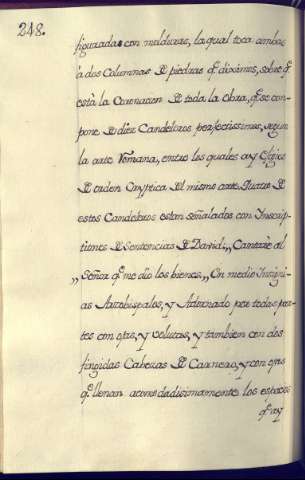 248.
figuradas con molduras, la qual toca ambas
à dos Columnas de piedras q.e diximos, sobre q.e
està la Coronacion de toda la Obra, q.e se com-
pone de diez Candeleros perfectissimos, segun
la arte Romana, entre los quales ay
de orden del mismo arte. Quatro de
estos Candeleros estan señalados con Inscrip-
tiones de Sentencias de David: ,, Cantarè al
,, Señor q.e me dio los bienes,, En medio Insigni-
as Arzobispales, y Adornado por todas par-
tes con ojas, y volutas, y tambien con dos
fingidas Cabezas de Carnero, y con ojas
q.e llenan acomodadisimamente los espacios
q.e ay